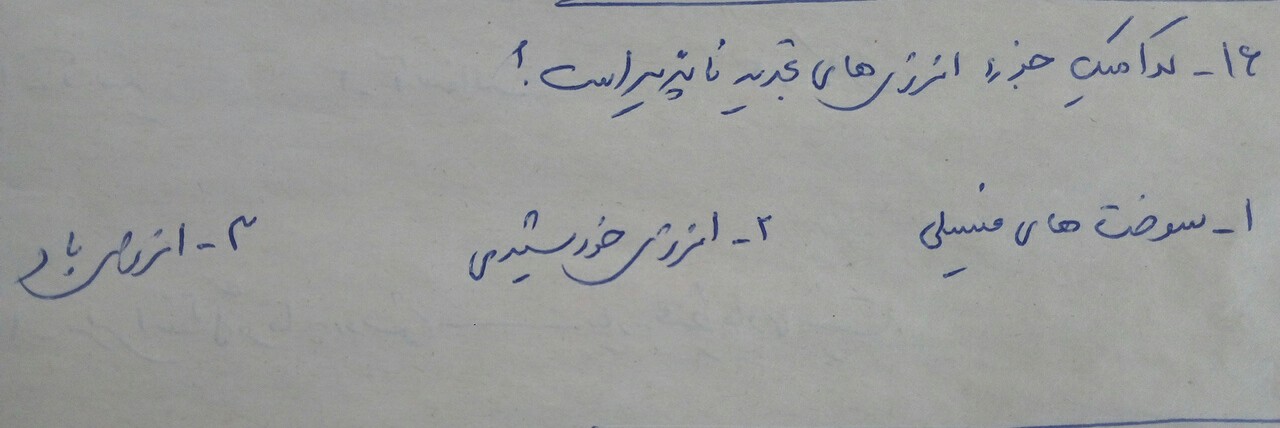 ۱۶- کدامیک جزء انرژی های تجدید ناپذیر است؟
۱- سوخت های فسیلی ۲- انرژی خورشیدی ۳- انرژی باد